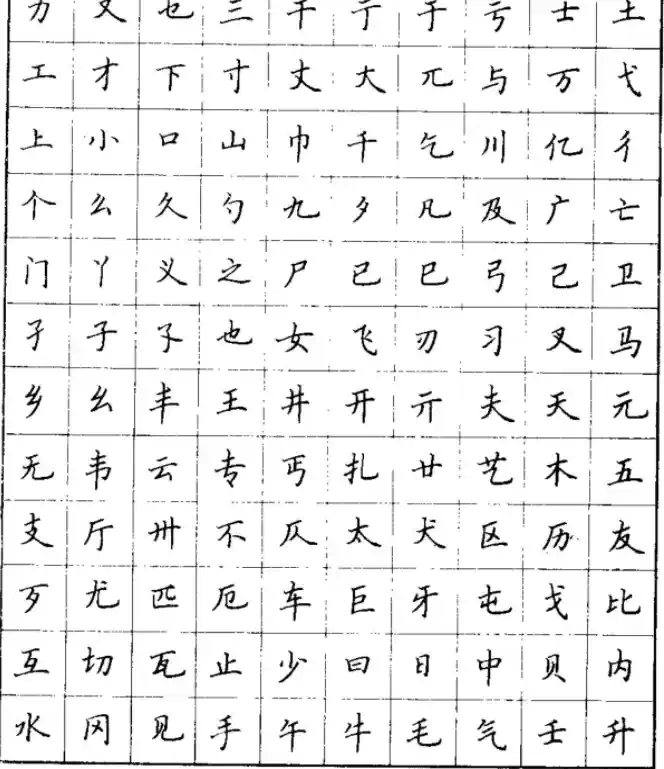 力又乜三干亍于亏士土
工才下寸丈大兀与万弋
上小口山巾千乞川亿彳
个么久勺丸夕凡及广亡
门丫义之尸已巳弓己卫
孑子孓也女飞刃习叉马
乡幺丰王井开亓夫天元
无韦云专丐扎廿艺木五
支厅卅不仄太犬区历友
歹尤匹厄车巨牙屯戈比
互切瓦止少曰日中贝内
水冈见手午牛毛气壬升